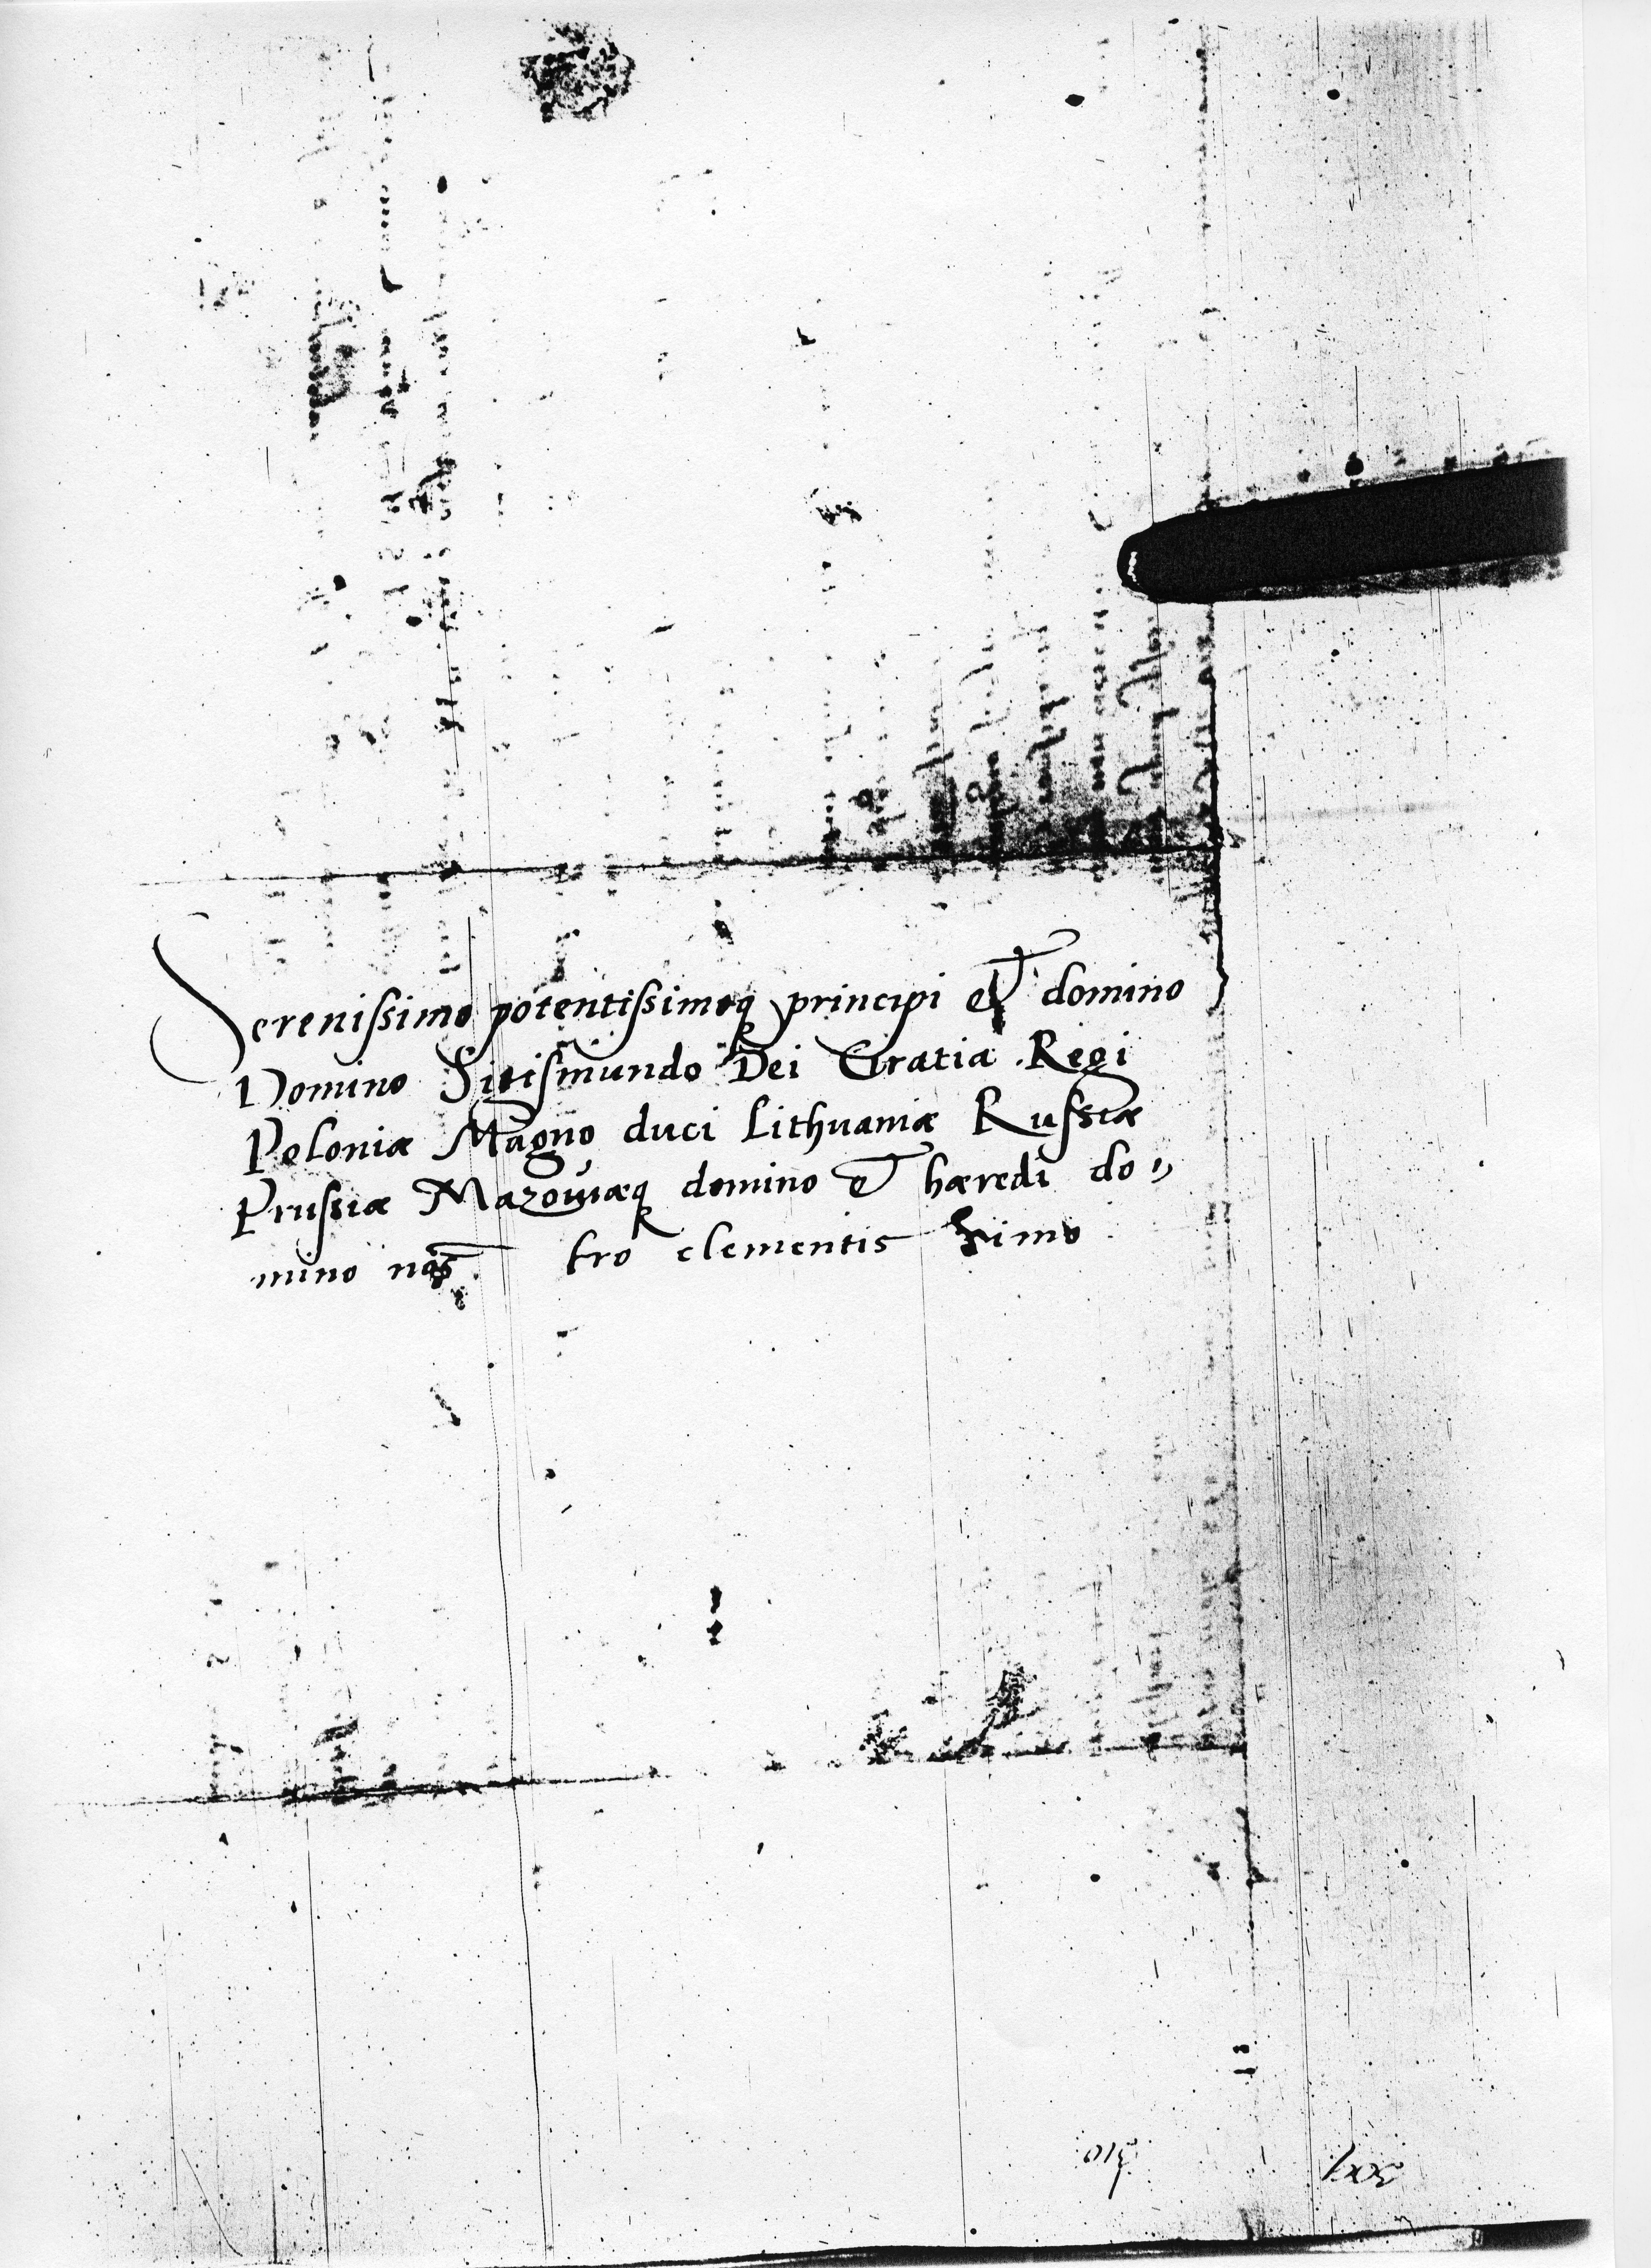 Serenissimo potentissimoq principi et domino
Domino Sigismundo Dei Gratia Regi
Poloniæ Magno duci Lithuaniæ Russiæ
Prussiæ Mazowiæq domino et hæredi do„
mino nos tro clementis simo